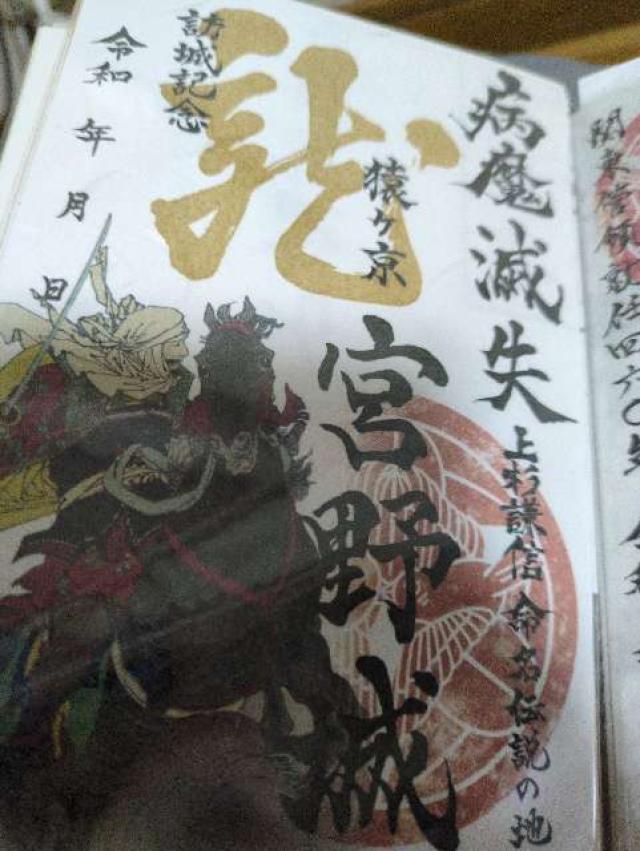 病魔滅失
上杉謙信 命名伝説の地
猿ヶ京
宮野城
龍
訪城記念
令和 年 月 日
関東管領